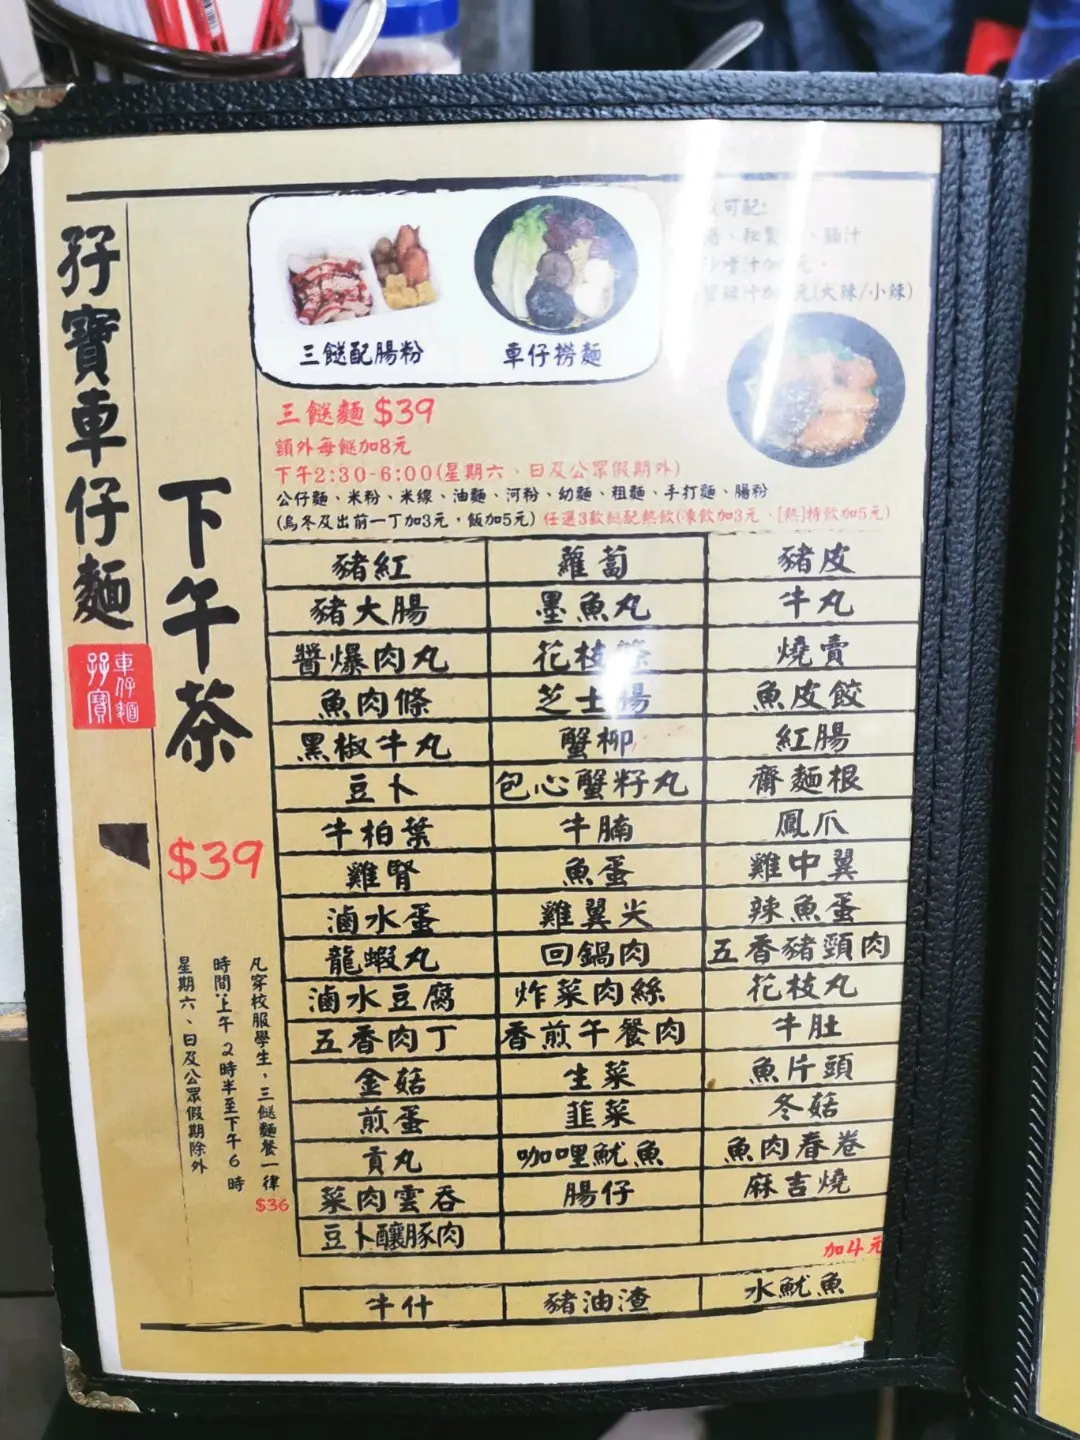 孖寶車仔麵
車仔麵
孖寶
下午茶
$39
凡穿校服學生，三餸麵餐一律
$36
時間：上午2時半至下午6時
星期六、日及公眾假期除外
三餸配腸粉
車仔撈麵
可配：
麵汁
(大辣/小辣)
三餸麵 $39
額外每餸加8元
下午2:30-6:00(星期六、日及公眾假期外)
公仔麵、米粉、米線、油麵、河粉、幼麵、粗麵、手打麵、腸粉
(烏冬及出前一丁加3元，飯加5元) 任選3款餸配熱飲(凍飲加3元、[熱]特飲加5元)
豬紅 蘿蔔 豬皮
豬大腸 墨魚丸 牛丸
醬爆肉丸 花枝條 燒賣
魚肉條 芝士腸 魚皮餃
黑椒牛丸 蟹柳 紅腸
豆卜 包心蟹籽丸 齋麵根
牛柏葉 牛腩 鳳爪
雞腎 魚蛋 雞中翼
滷水蛋 雞翼尖 辣魚蛋
龍蝦丸 回鍋肉 五香豬頸肉
滷水豆腐 炸菜肉絲 花枝丸
五香肉丁 香煎午餐肉 牛肚
金菇 生菜 魚片頭
煎蛋 韮菜 冬菇
貢丸 咖哩魷魚 魚肉春卷
菜肉雲吞 腸仔 麻吉燒
豆卜釀豚肉
加4元
牛什 豬油渣 水魷魚